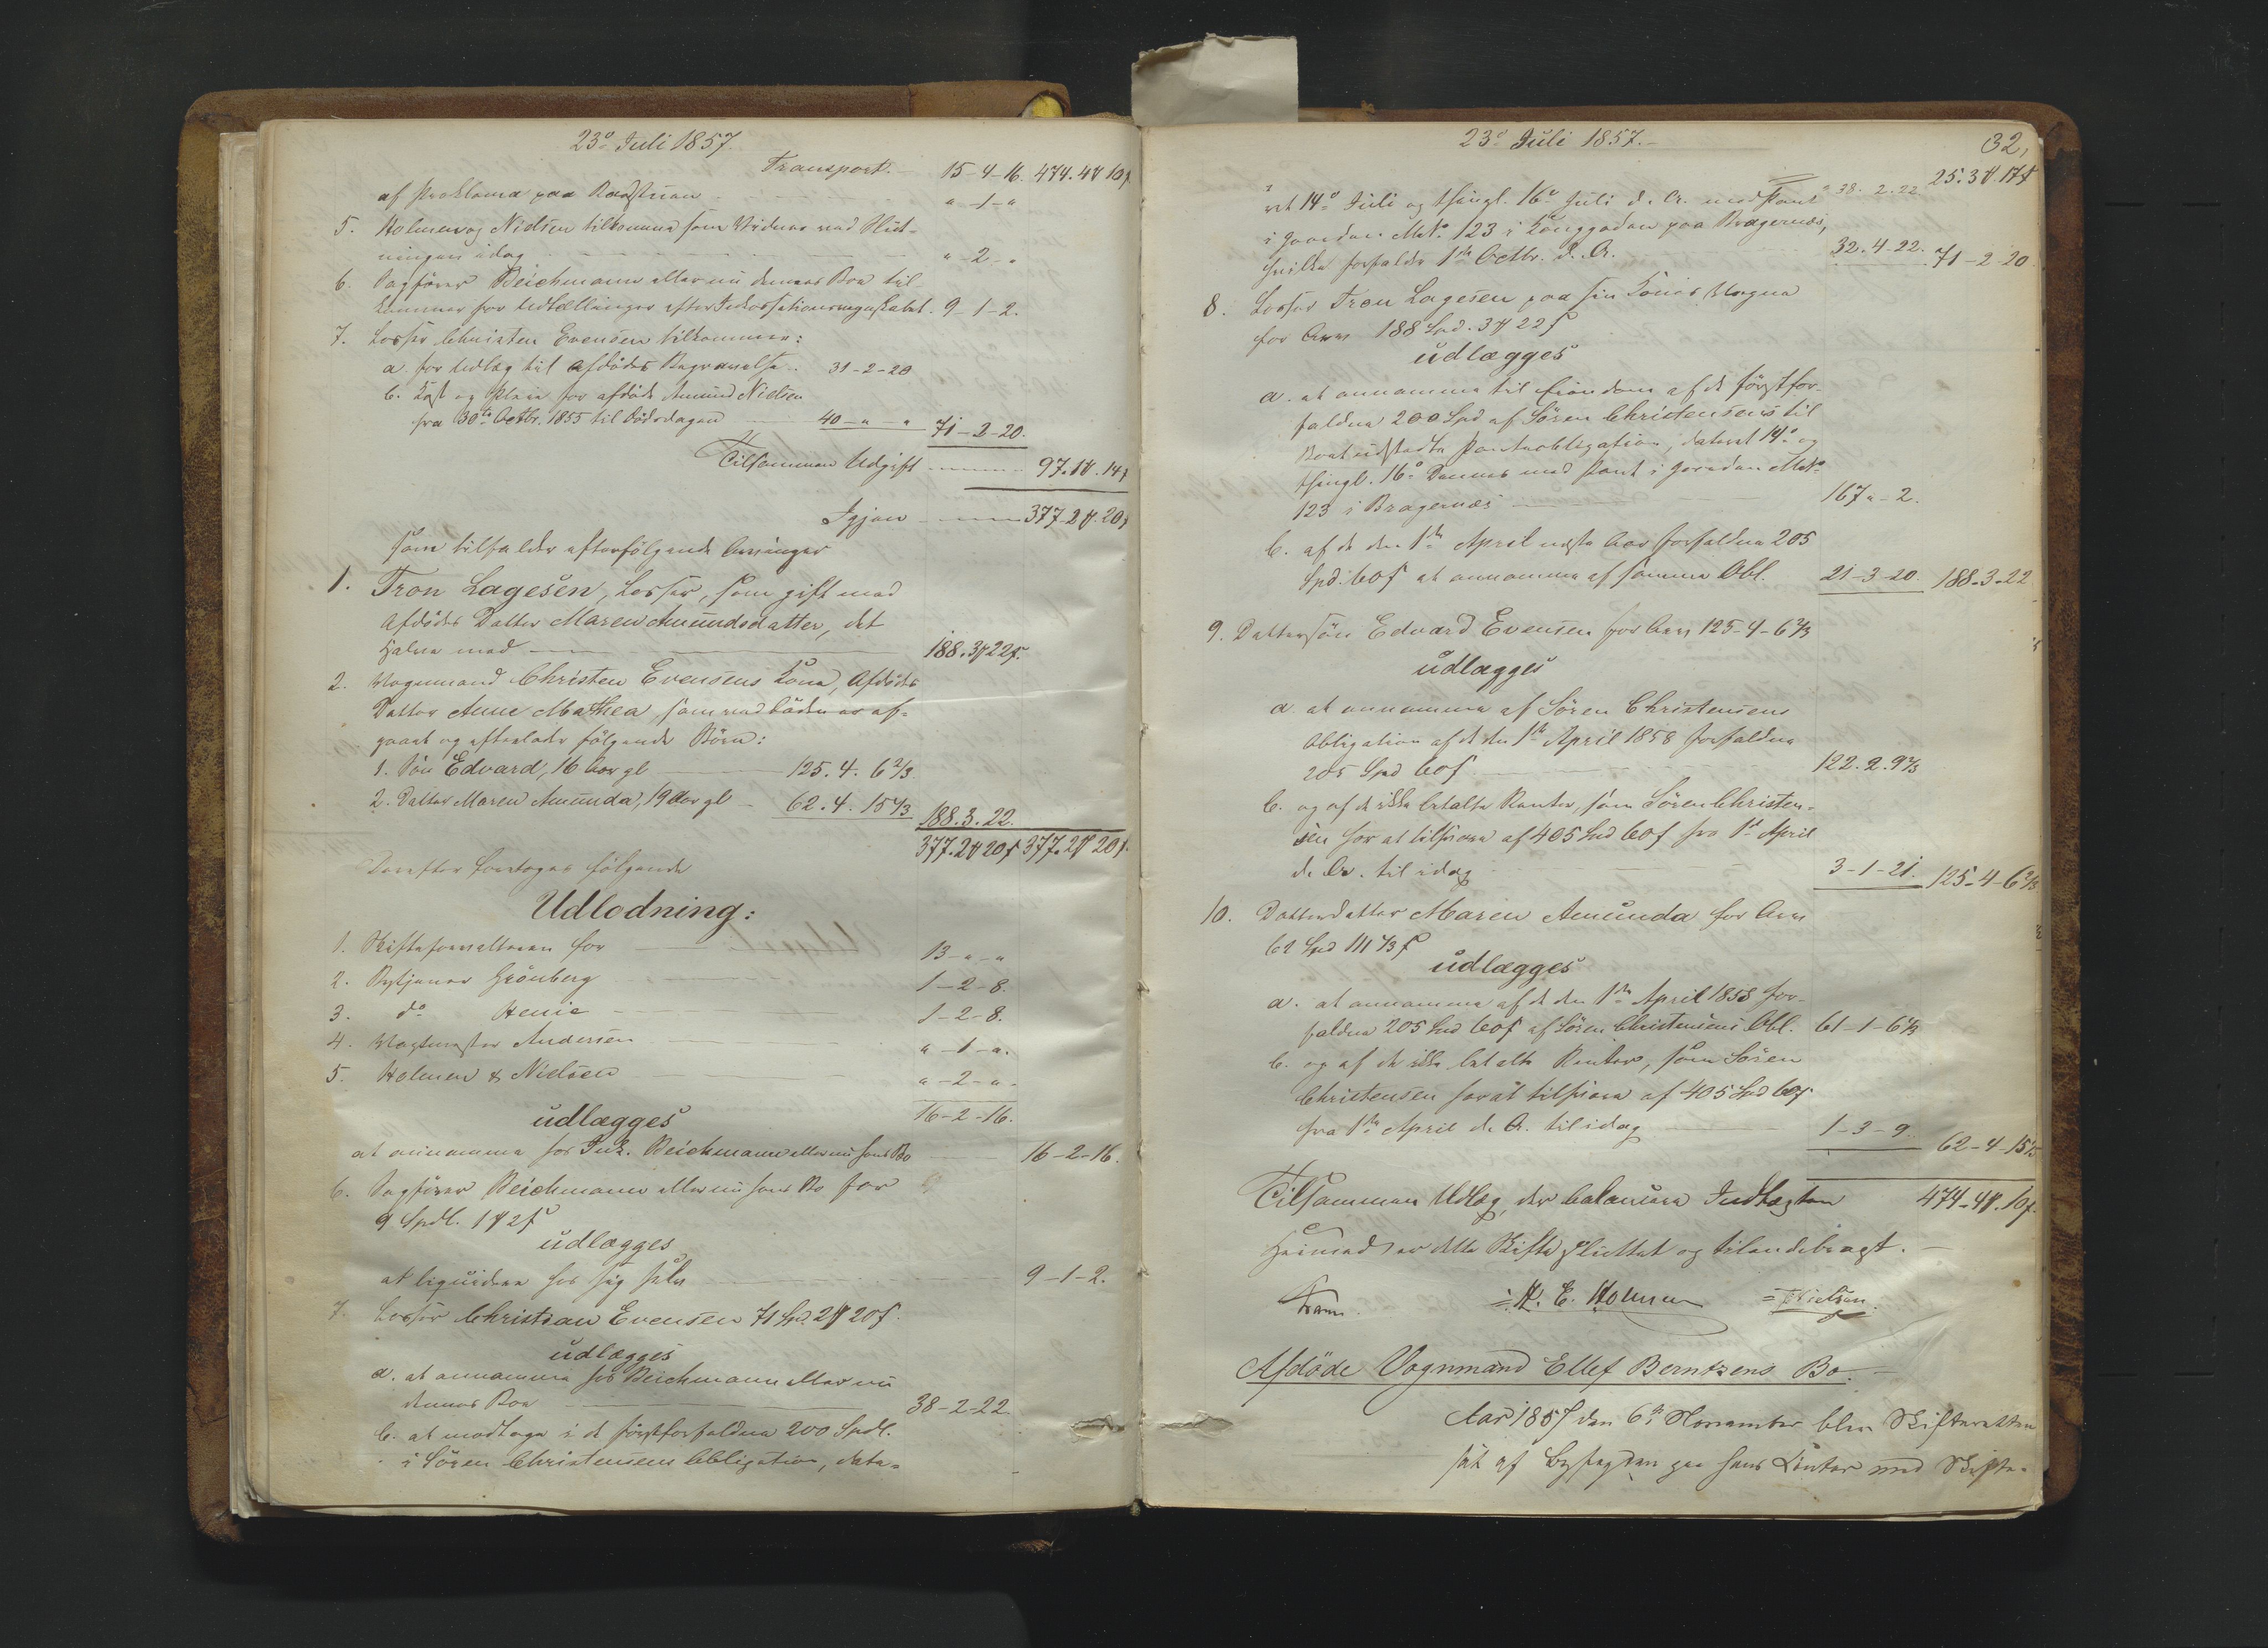 23de Juli 1857.
Transport. 15-4-16. 474.4 ℔ 10 ß
af Proklama paa Raadstuen " - 1 - "
5. Holmen og Nielsen tilkomme som Vidner ved Slut-
ningen idag " - 2 - "
6. Sagfører Beichmann eller nu dennes Boe til-
kommer for Udtællinger efter Inkassationsregnskabet. 9-1-2.
7. Losser Christen Evensen tilkommer:
a. for Udlæg til Afdødes Begravelse. 31-2-20
b. Kost og Pleie for afdøde Amund Nielsen
fra 30te Octbr. 1855 til Dødsdagen 40 - " - " 71-2-20.
Tilsammen Udgift 97.1 ℔. 14 ß
Igjen 377-2 ℔. 20 ß
som tilfalder efterfølgende Arvinger
1. Tron Lagesen, Losser, som gift med
Afdødes Datter Maren Amundsdatter, det
Halve med 188.3 ℔ 22 ß.
2. Vognmand Christen Evensens Kone, Afdødes
Datter Anne Mathea, som ved Døden er af-
gaaet og efterlader følgende Børn:
1. Søn Edvard, 16 Aar gl 125. 4. 6 2/3.
2. Datter Maren Amunda, 19 Aar gl 62. 4. 15 1/3 188.3.22.
377.2 ℔ 20 ß 377.2 ℔ 20 ß.
Derefter foretoges følgende
Udlodning:
1. Skifteforvalteren for 13 - " - "
2. Bytjener Grönberg 1-2-8.
3. do Henie 1-2-8.
4. Vagtmester Andersen " - 1 - ".
5. Holmen & Nielsen " - 2 - ".
16-2-16.
udlægges
at annamme hos Ink. Beichmann eller nu hans Bo 16-2-16.
6. Sagfører Beichmann eller nu hans Bo for
9 Spdl. 1 ℔ 2 ß
udlægges
at liquidere hos sig selv 9-1-2.
7. Losser Christian Evensen 71 Spd. 2 ℔ 20 ß.
udlægges
a. at annamme hos Beichmann eller nu
dennes Boe 38-2-22.
b. at modtage i de förstforfaldne 200 Spdl.
i Sören Christensens Obligation, date-
23de Juli 1857.
32,
38-2-22. 25.3 ℔. 17 ß
ret 14de Juli og thingl. 16de Juli d. A. med Pant
i Gaarden Mat. No 123 i Konggaden paa Bragernæs,
hvilke forfalde 1ste Octbr. d. A. 32.4.22. 71-2-20
8. Losser Tron Lagesen paa sin Kones Vegne
for Arv 188 Spd. 3 ℔ 22 ß
udlægges
a. at annamme til Eiendom af de förstfor-
faldne 200 Spd af Sören Christensens til
Boet udstedte Panteobligation, dateret 14de og
thingl. 16de Dennes med Pant i Gaarden Mat. No
123 i Bragernæs 167 " - 2.
b. af de den 1ste April næste Aar forfaldne 205
Spd. 60 ß at annamme af samme Obl. 21-3-20. 188-3-22
9. Dattersön Edvard Evensen for Arv 125-4-6 2/3
udlægges
a. at annamme af Sören Christensens
Obligation af de den 1ste April 1858 forfaldne
205 Spd 60 ß 122.2.9 2/3
b. og af de ikke betalte Renter, som Sören Christen-
sen har at tilsvare af 405 Spd 60 ß fra 1ste April
d. A. til idag 3-1-21. 125-4-6 2/3
10. Datterdatter Maren Amunda for Arv
62 Spd 111 1/3 ß
udlægges
a. at annamme af de den 1ste April 1858 for-
faldne 205 Spd 60 ß af Sören Christensens Obl. 61-1-6 1/3
b. og af de ikke betalte Renter, som Sören
Christensen har at tilsvare af 405 Spd 60 ß
fra 1ste April d. A. til idag 1-3-9 62-4-15 1/3
Tilsammen Udlæg, der balancere Indtægten 474-4 ℔. 10 ß.
Hermed er dette Skifte sluttet og tilendebragt.
H. E. Holmen Nielsen
Afdöde Vognmand Ellef Berntzens Bo.
Aar 1857 den 6te November blev Skifteretten
sat af Byfogden paa hans Contor med Skifte-